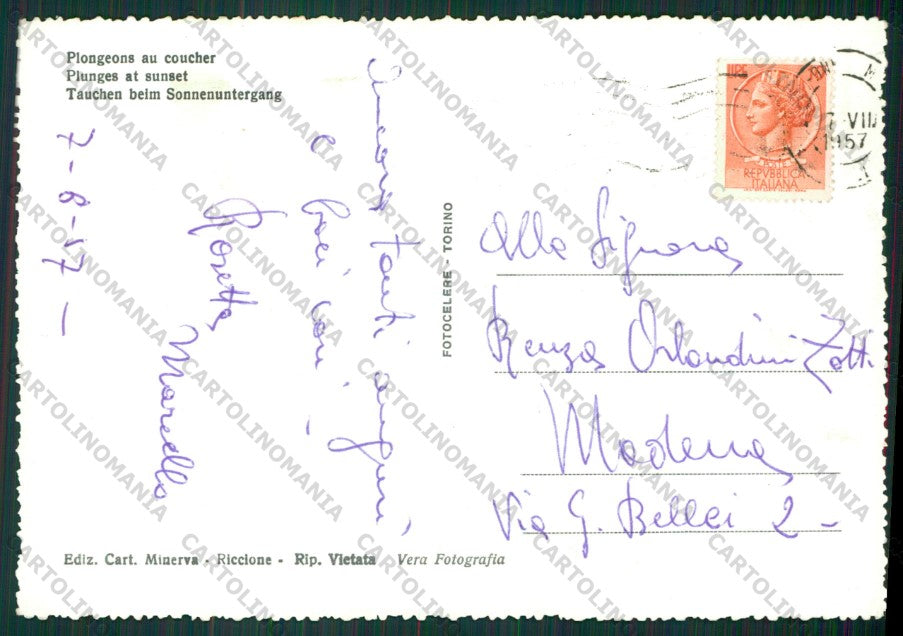 Plongeons au coucher
Plunges at sunset
Tauchen beim Sonnenuntergang
7-6-57 —
Ancora tanti auguri,
e baci cari.
Rosetta
Marcello
FOTOCELERE - TORINO
LIRE
POSTE
REPVBBLICA
ITALIANA
VII
1957
Alla Signora
Renza Orlandini Zotti
Modena
Via G. Bellei 2 -
Ediz. Cart. Minerva - Riccione - Rip. Vietata Vera Fotografia
CARTOLINOMANIA